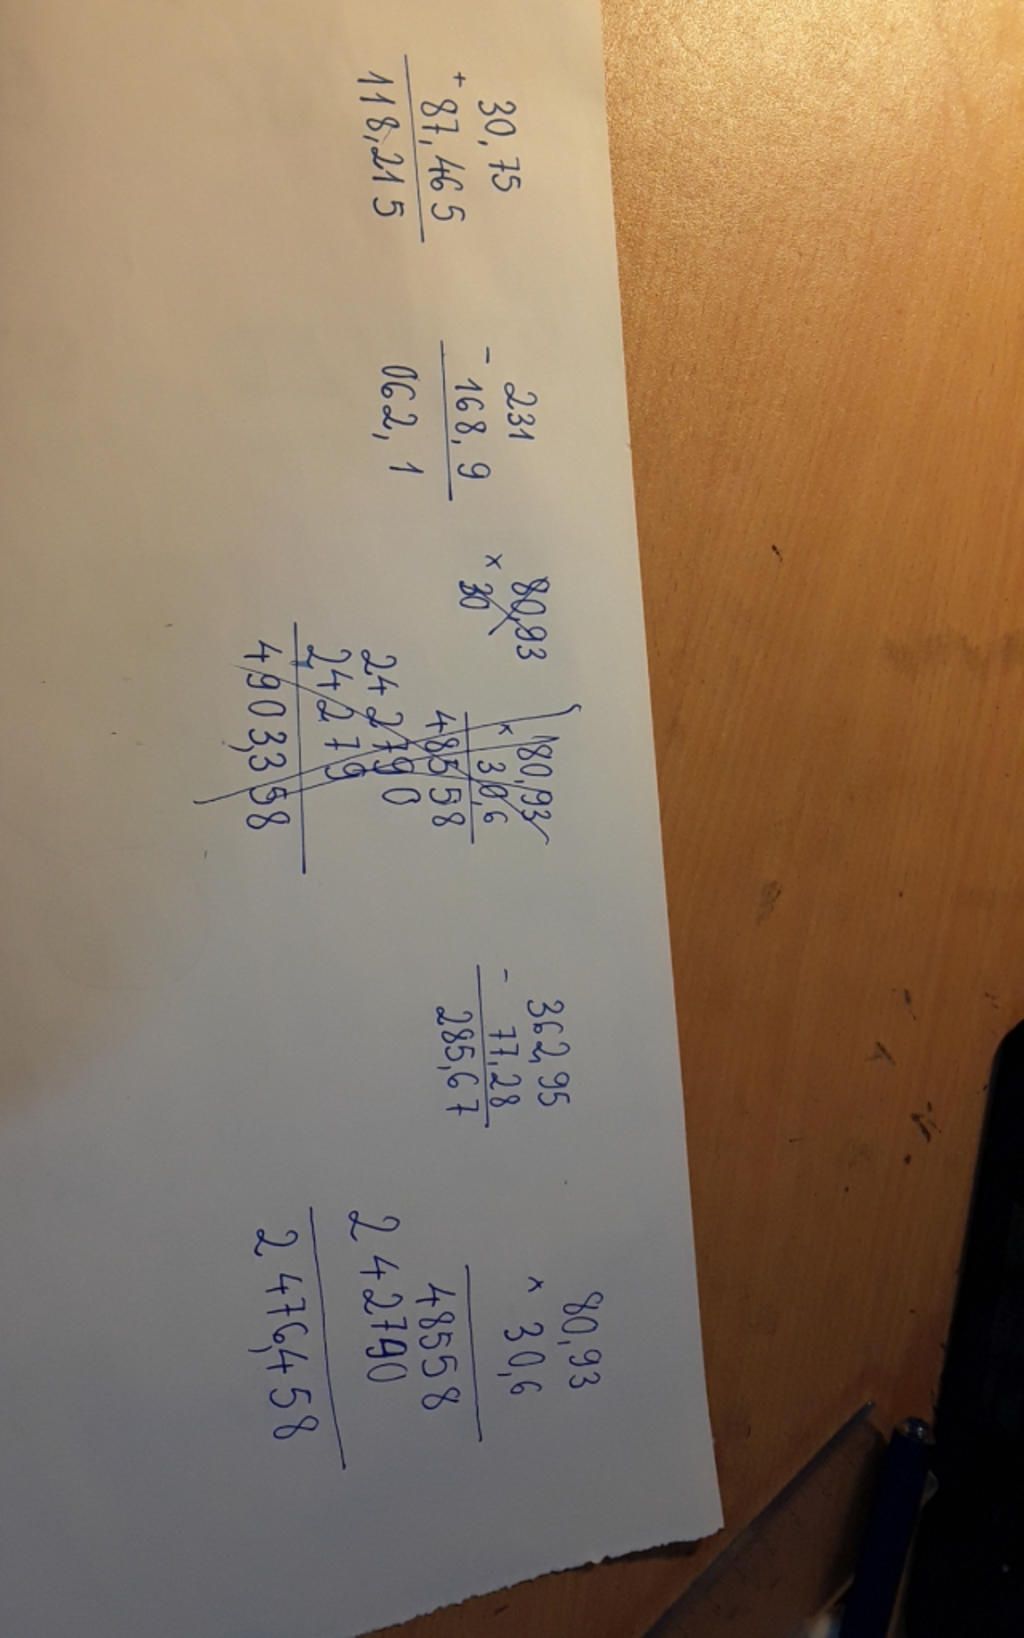 30,75
+ 87,465
118,215
231
- 168,9
062,1
80,93
× 30
80,93
× 30,6
48558
242790
24279
4903,358
362,95
- 77,28
285,67
80,93
× 30,6
48558
242790
2476,458